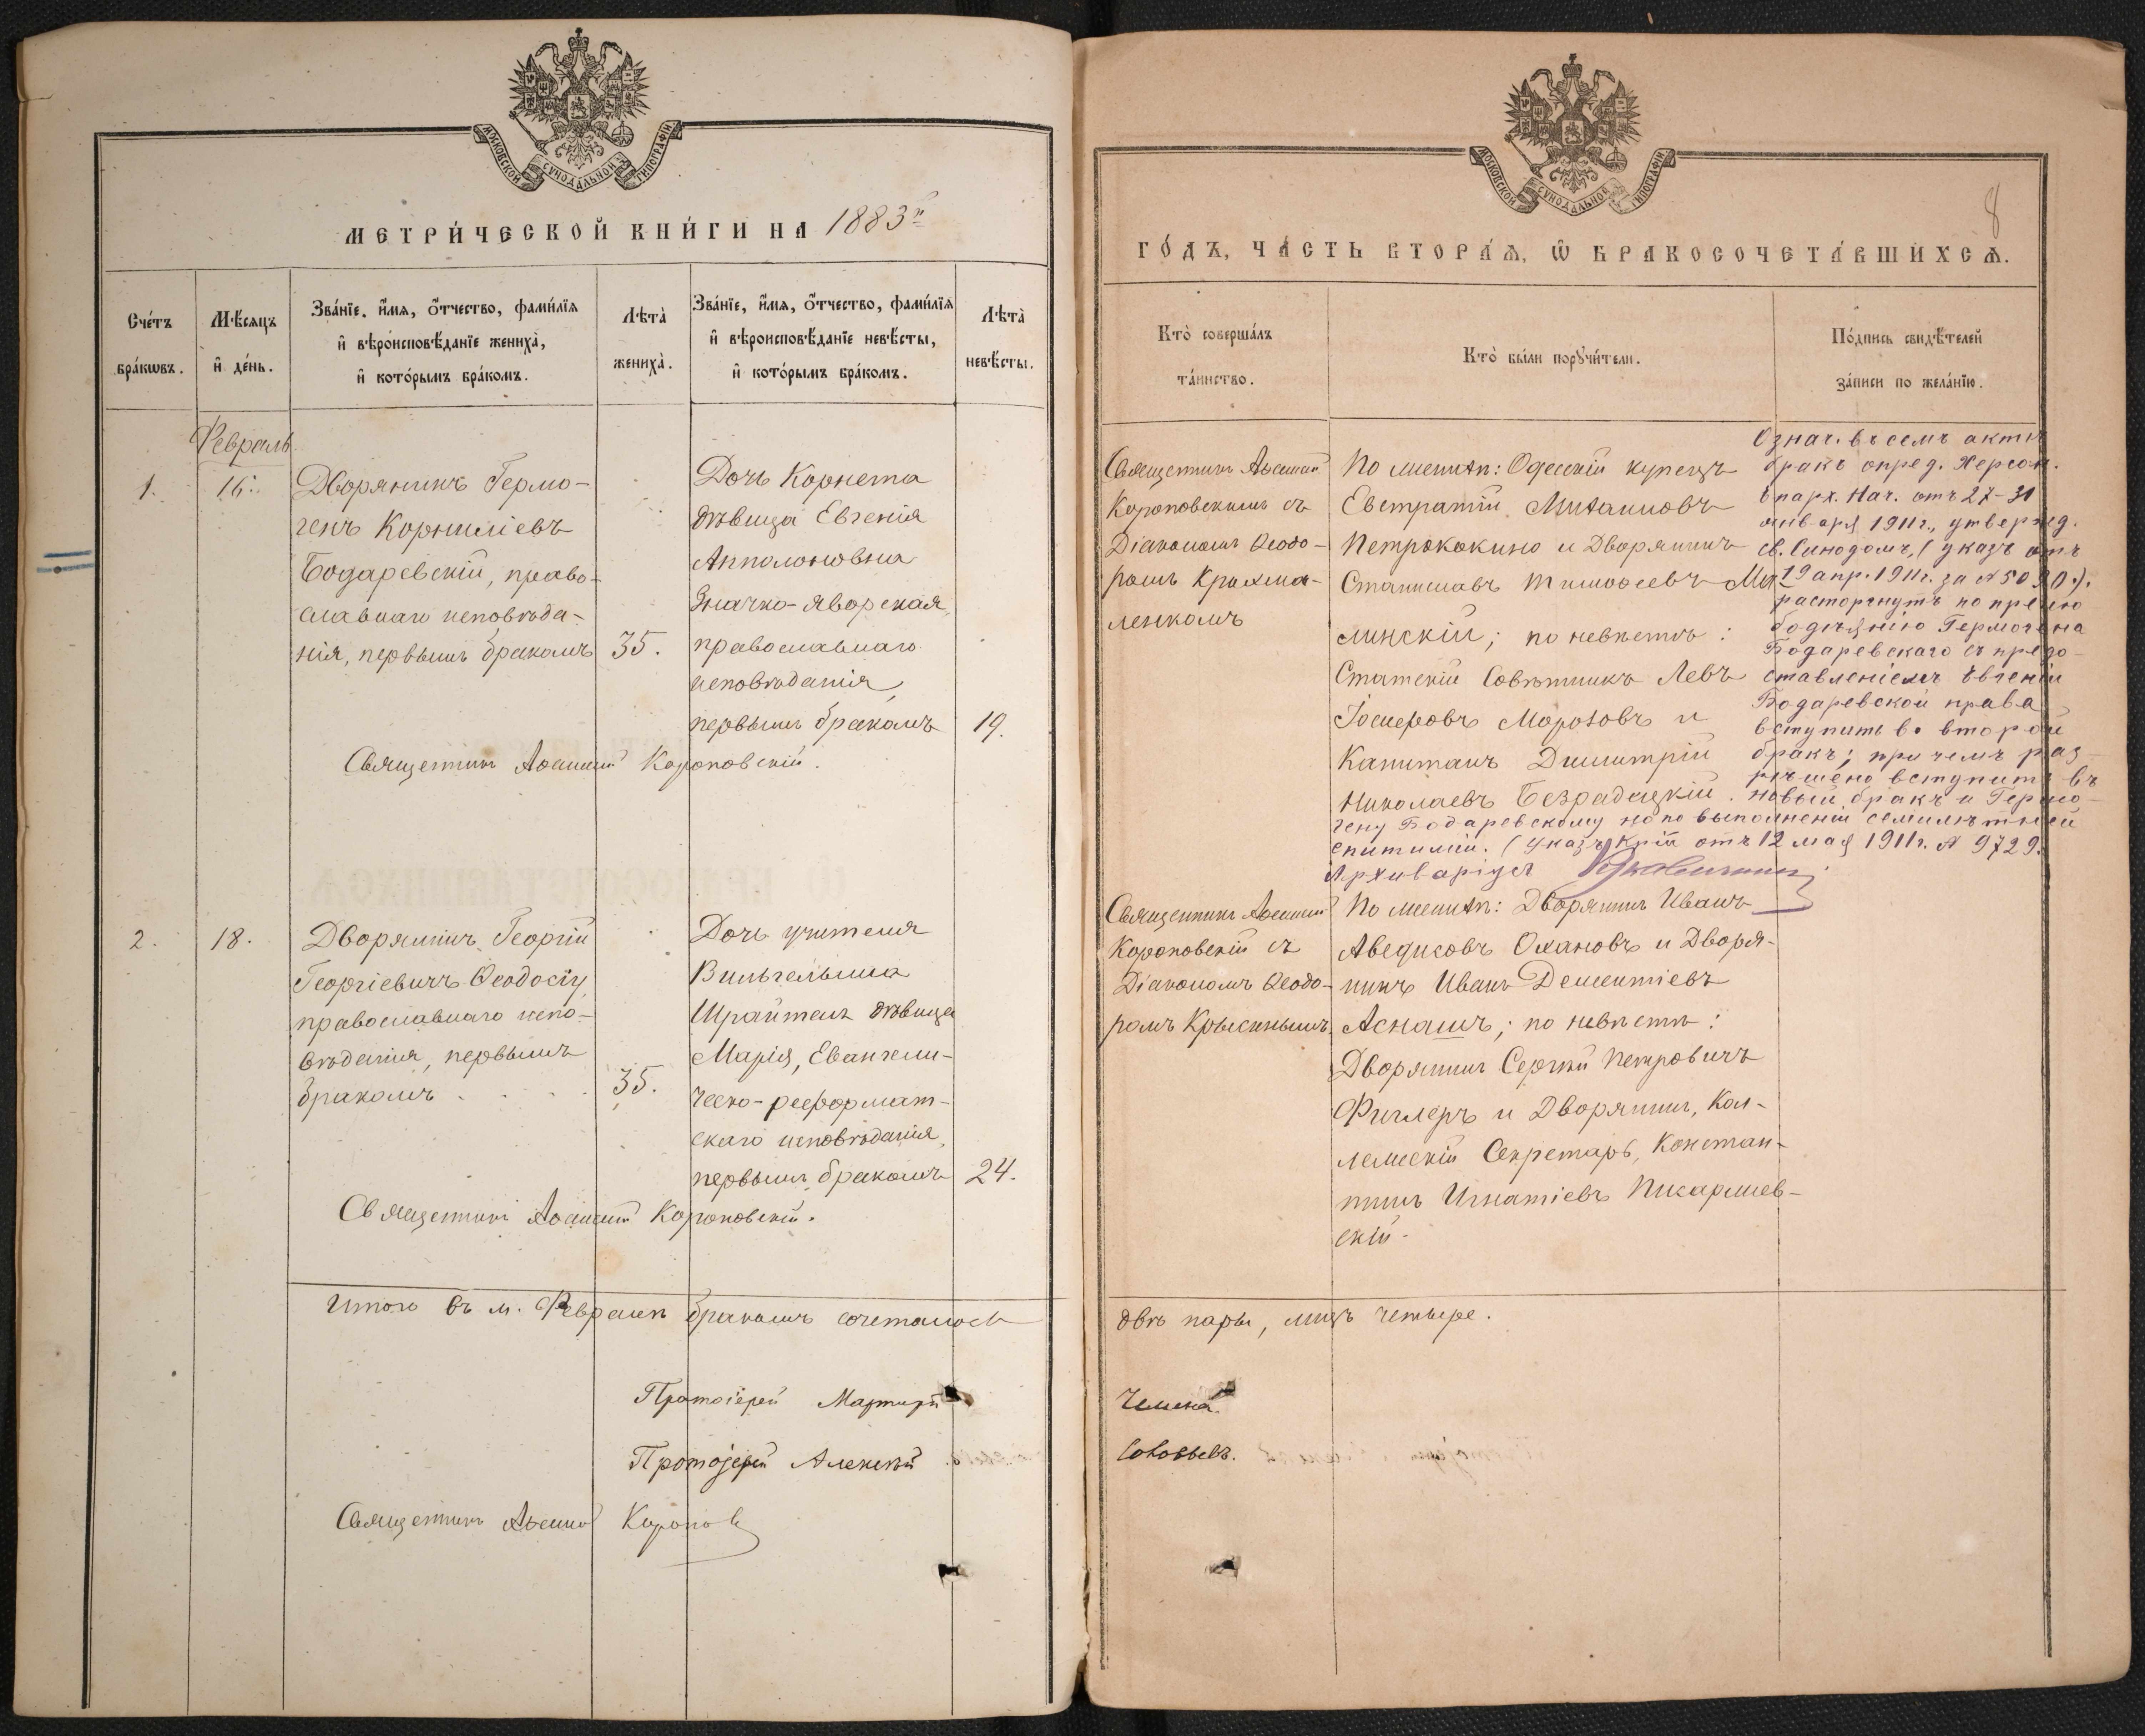 МОСКОВСКОЙ СѴНОДАЛЬНОЙ ТИПОГРАФІИ
МЕТРИ́ЧЕСКОЙ КНИ́ГИ НА 1883й
Сче́тъ бра́кωвъ.
Мѣ́сяцъ и҆ де́нь.
Зва́нїе, и҆́мя, ѻ҆́тчество, фами́лїя
и҆ вѣроисповѣ́данїе жениха̀,
и҆ кото́рымъ бра́комъ.
Лѣта̀ жениха̀.
Зва́нїе, и҆́мя, ѻ҆́тчество, фами́лїя
и҆ вѣроисповѣ́данїе невѣ́сты,
и҆ кото́рымъ бра́комъ.
Лѣта̀ невѣ́сты.
Февраль
1.
16.
Дворянинъ Гермо-
генъ Корниліевъ
Бодаревскій, право-
славнаго исповѣда-
нія, первымъ бракомъ
35.
Дочь Корнета
дѣвица Евгенія
Апполоновна
Значко-Яворская,
православнаго
исповѣданія,
первымъ бракомъ
19.
Священникъ Аѳанасій Короповскій.
2.
18.
Дворянинъ Георгій
Георгіевичъ Ѳеодосіу
православнаго испо-
вѣданія, первымъ
бракомъ
35.
Дочь учителя
Вильгельма
Шрайтель дѣвица
Марія, Евангели-
ческо-реформат-
скаго исповѣданія,
первымъ бракомъ
24.
Священникъ Аѳанасій Короповскій.
Итого въ м. Февралѣ бракомъ сочеталось
Протоіерей Мартирій
Протоіерей Алексѣй
Священникъ Аѳанасій Коропов
МОСКОВСКОЙ СѴНОДАЛЬНОЙ ТИПОГРАФІИ
8
ГО́ДЪ, ЧА́СТЬ ВТОРА́Я, Ѽ БРАКОСОЧЕТА́ВШИХСЯ.
Кто̀ соверша́лъ
та́инство.
Кто̀ бы́ли порꙋчи́тели.
По́дпись свидѣ́телей
за́писи по жела́нїю.
Священникъ Аѳанасій
Короповскимъ съ
Діакономъ Ѳеодо-
ромъ Крахма-
ленкомъ
По женихѣ: Одесскій купецъ
Евстратій Михаиловъ
Петрококино и Дворянинъ
Станиславъ Тимоѳеевъ Мя-
линскій; по невѣстѣ:
Статскій Совѣтникъ Левъ
Іосифовъ Морозовъ и
Капитанъ Димитрій
Николаевъ Безрадецкій.
Означ. въ семъ актѣ
бракъ опред. Херсон.
Епарх. Нач. отъ 27-31
января 1911г., утвержд.
св. Синодомъ, (указъ отъ
19 апр. 1911г. за № 5090.).
расторгнутъ по прелю
бодѣянію Гермогена
Бодаревскаго съ предо-
ставленіемъ Евгеніи
Бодаревской права
вступить во второй
бракъ; при чемъ раз-
рѣшено вступить въ
новый бракъ и Гермо-
гену Бодаревскому но по выполненіи семилѣтней
епитиміи. (указъ Крій отъ 12 мая 1911г. № 9729.
Архиваріусъ
Священникъ Аѳанасій
Короповскій съ
Діакономъ Ѳеодо-
ромъ Крысинымъ.
По женихѣ: Дворянинъ Иванъ
Аведисовъ Охановъ и Дворя-
нинъ Иванъ Дементіевъ
Аснашъ; по невѣстѣ:
Дворянинъ Сергѣй Петровичъ
Фиглеръ и Дворянинъ, Кол-
лежскій Секретарь, Констан-
тинъ Игнатіевъ Писаржев-
скій.
двѣ пары, лицъ четыре.
Чемена.
Соловьевъ.